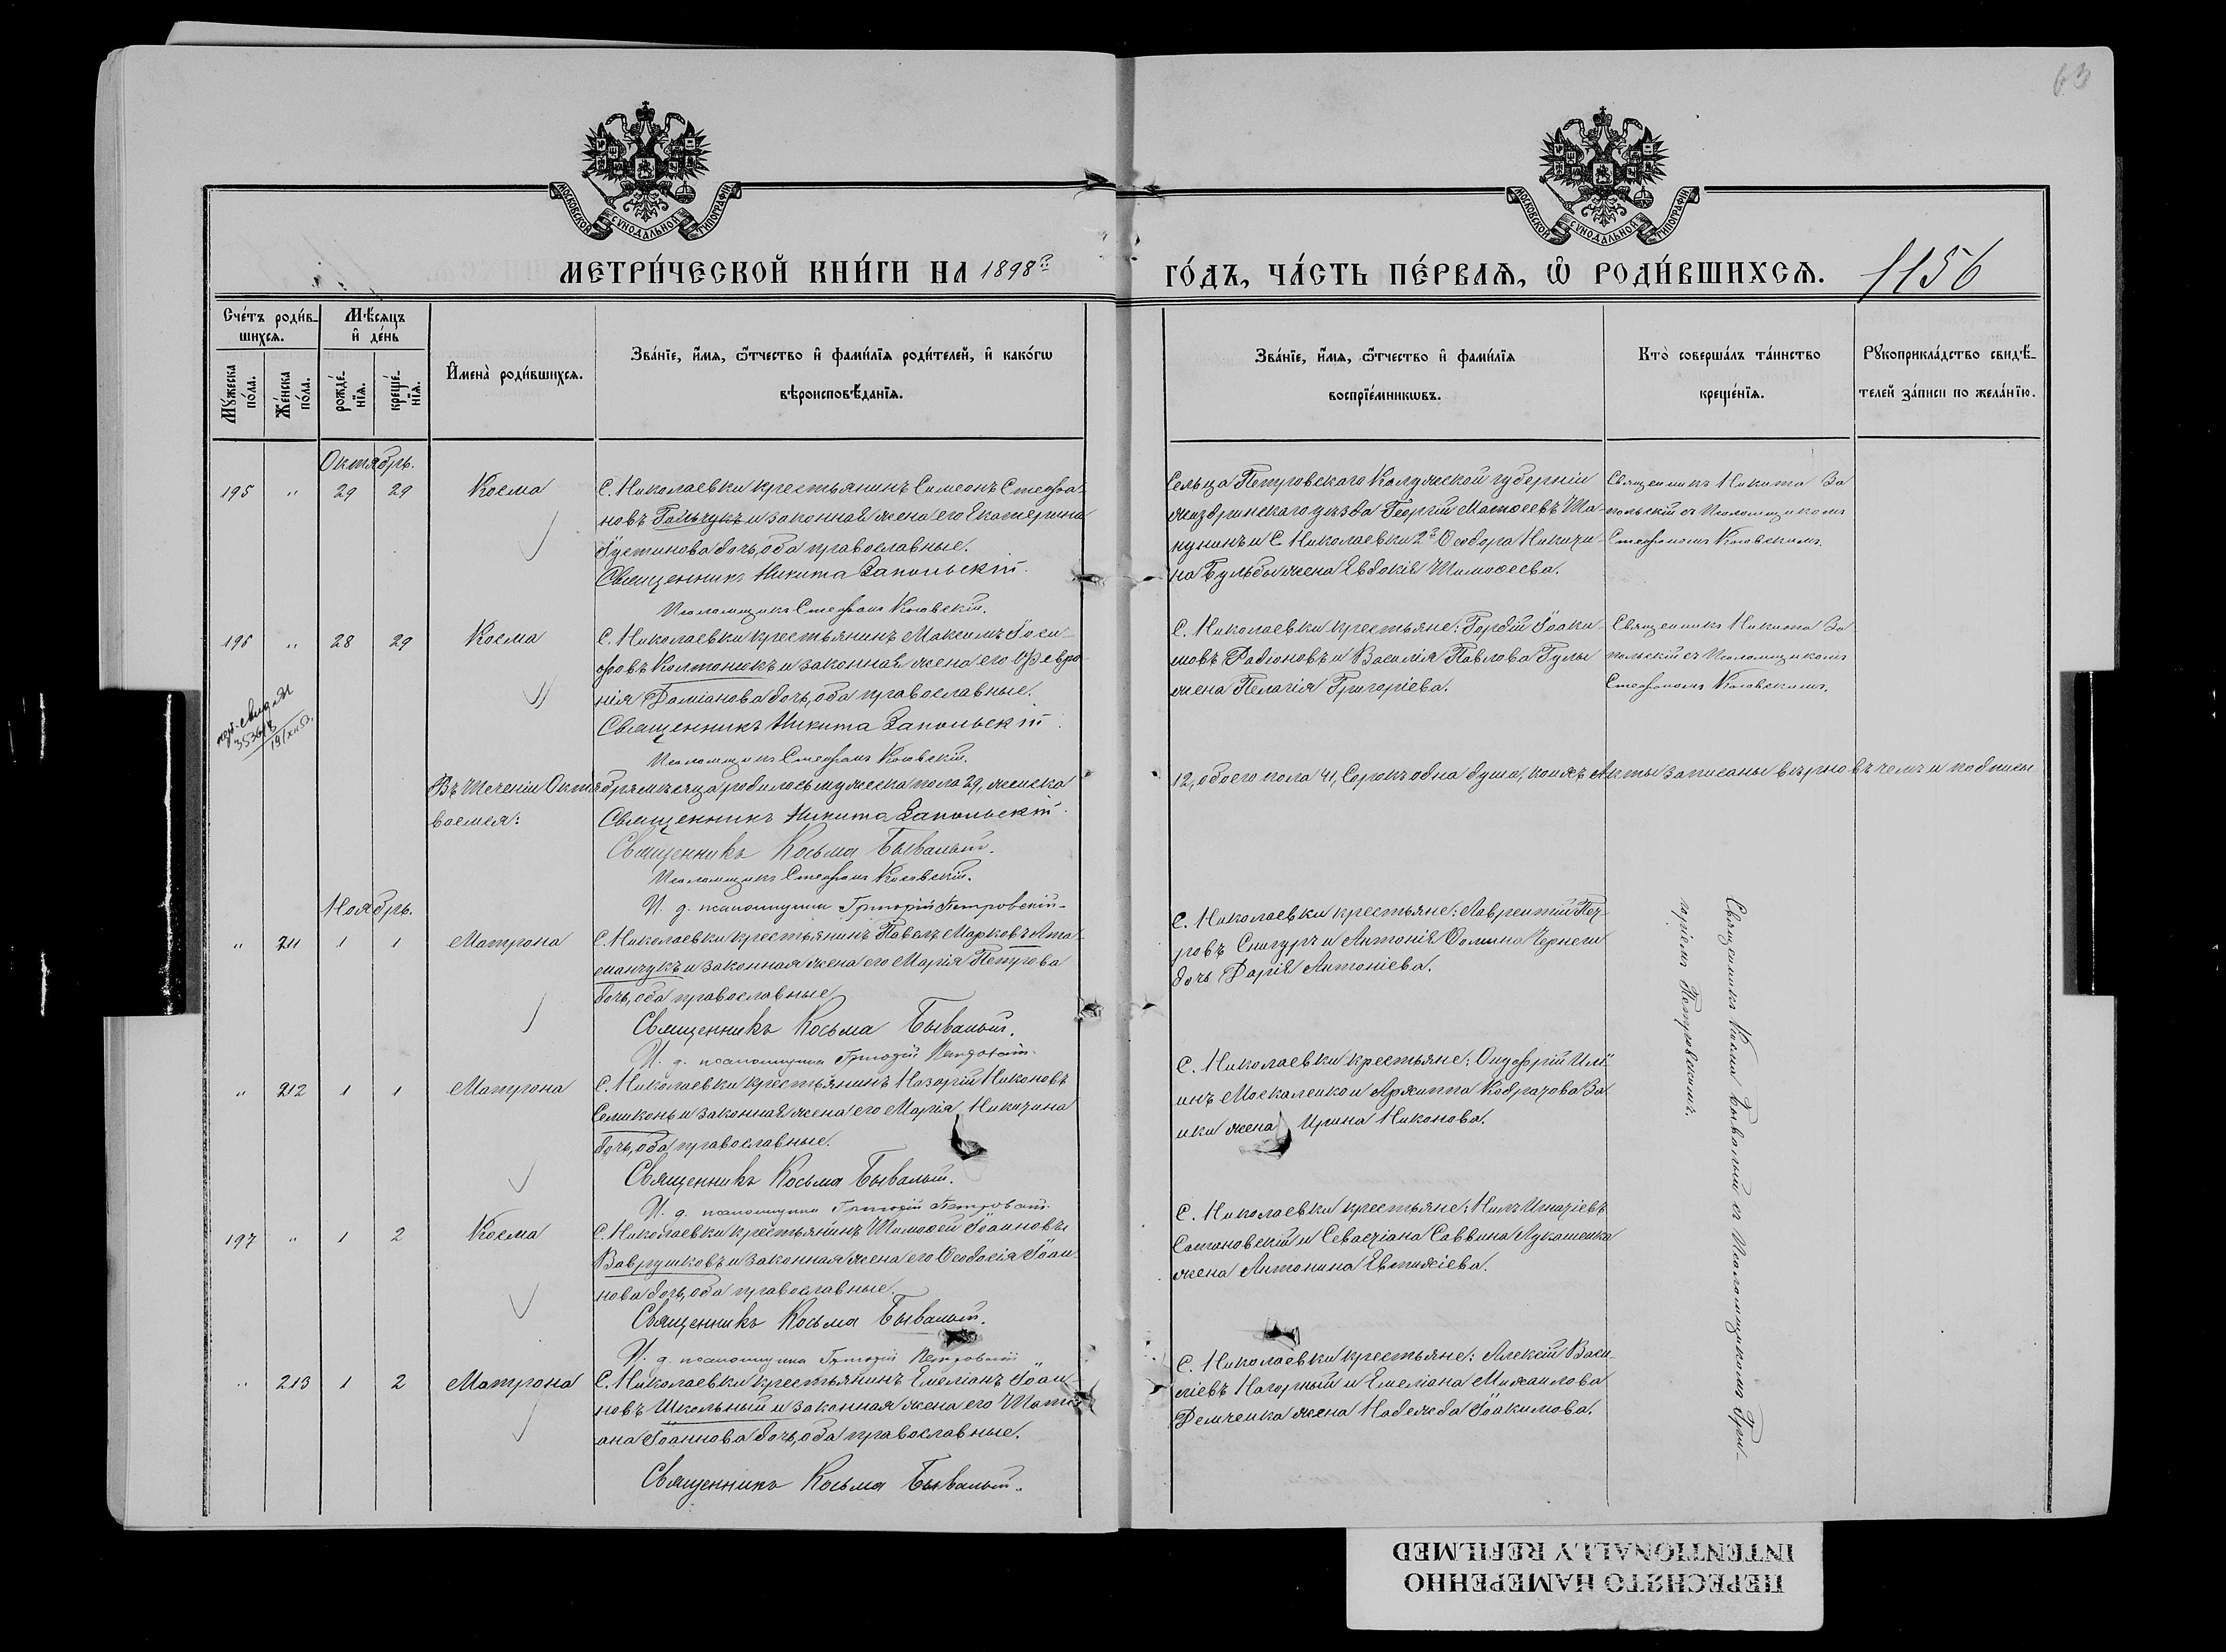 63
МОСКОВСКОЙ СѴНОДАЛЬНОЙ ТИПОГРАФІИ
МОСКОВСКОЙ СѴНОДАЛЬНОЙ ТИПОГРАФІИ
МЕТРИ́ЧЕСКОЙ КНИ́ГИ НА 1898 й
ГО́ДЪ, ЧА́СТЬ ПЕ́РВАѦ, Ѡ҆ РОДИ́ВШИХСѦ.
1156
Сче́тъ роди́в-
шихсѧ.
Мѣ́сѧцъ
и҆ де́нь
Мꙋ́жеска
по́ла.
Же́нска
по́ла.
рожде́-
нїѧ.
креще́-
нїѧ.
И҆мена̀ роди́вшихсѧ.
Зва́нїе, и҆́мѧ, ѻ҆́тчество и҆ фами́лїѧ роди́телей, и҆ како́гѡ
вѣроисповѣ́данїѧ.
Зва́нїе, и҆́мѧ, ѻ҆́тчество и҆ фами́лїѧ
воспрїе́мникѡвъ.
Кто̀ соверша́лъ та́инство
креще́нїѧ.
Рꙋкоприкла́дство свидѣ́-
телей за́писи по жела́нїю.
Октябрь.
195 " 29 29 Косма
С. Николаевки крестьянинъ Симеонъ Стефа-
новъ Гальчукъ и законная жена его Екатерина
Іустинова дочь, оба православные.
Священникъ Никита Запольскій.
Псаломщикъ Стефанъ Косовскій.
Сельца Петровскаго Калужской губерніи
жиздринскаго уѣзда Георгій Матѳеевъ
и С. Николаевки 2й Ѳеодора Никити-
на Бульбы жена Евдокія Тимоѳеева.
Священникъ Никита За
польскій съ Псаломщикомъ
Стефаномъ Косовскимъ.
196 " 28 29 Косма
С. Николаевки крестьянинъ Максимъ Іоси-
фовъ Колтоникъ и законная жена его Февро
нія Даміанова дочь, оба православные.
Священникъ Никита Запольскій.
Псаломщикъ Стефанъ Косовскій.
С. Николаевки крестьяне: Гордій Іоаки-
мовъ Радіоновъ и Василія Павлова Гулы
жена Пелагія Григоріева.
Священникъ Никита За
польскій съ Псаломщикомъ
Стефаномъ Косовскимъ.
Въ теченіи Октября мѣсяца родилось мужеска пола 29, женска 12, обоего пола 41, Сорокъ одна душа, коихъ Акты записаны вѣрно въ чемъ и подписы-
ваемся:
Священникъ Никита Запольскій.
Священникъ Косьма Бывалый.
Псаломщикъ Стефанъ Косовскій.
И. д. псаломщика Григорій Петровскій.
Ноябрь.
" 211 1 1 Матрона
С. Николаевки крестьянинъ Павелъ Марковъ Ата-
манчукъ и законная жена его Марія Петрова
дочь, оба православные
Священникъ Косьма Бывалый.
И. д. псаломщика Григорій Петровскій.
С. Николаевки крестьяне: Лаврентій Пет-
ровъ Снигуръ и Антонія Ѳомина Чернеги
дочь Дарія Антоніева.
Священникъ Косма Бывалый съ Псаломщикомъ Гри-
горіемъ Петровскимъ.
" 212 1 1 Матрона
С. Николаевки крестьянинъ Назарій Никоновъ
Семиконь и законная жена его Марія Никитина
дочь, оба православные.
Священникъ Косьма Бывалый.
И. д. псаломщика Григорій Петровскій.
С. Николаевки крестьяне: Онуфрій Илі-
инъ Москаленко и Архиппа Кодратова За
ики жена Ирина Никонова.
197 " 1 2 Косма
С. Николаевки крестьянинъ Тимоѳей Іоанновъ
Ваврушковъ и законная жена его Ѳеодосія Іоан-
нова дочь, оба православные.
Священникъ Косьма Бывалый.
И. д. псаломщика Григорій Петровскій
С. Николаевки крестьяне: Нилъ Игнатіевъ
Сатановскій и Севастіана Саввина Лукашенка
жена Антонина Евтихіева.
" 213 1 2 Матрона
С. Николаевки крестьянинъ Емеліанъ Іоан
новъ Школьный и законная жена его Тати-
ана Іоаннова дочь, оба православные.
Священникъ Косьма Бывалый.
С. Николаевки крестьяне: Алексій Васи-
ліевъ Нагорный и Емеліана Михаилова
Демченка жена Надежда Іоакимова.
ПЕРЕСНЯТО НАМЕРЕННО
INTENTIONALLY REFILMED